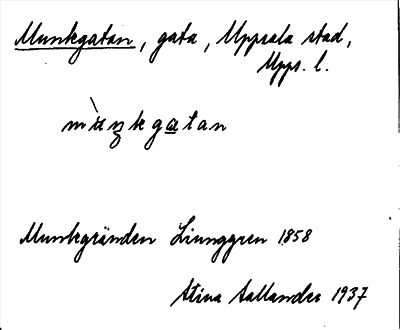 Munkgatan, gata, Uppsala stad,
Upps. l.
mùŋkgatan
Munkgränden Ljunggren 1858
Stina Sallander 1937